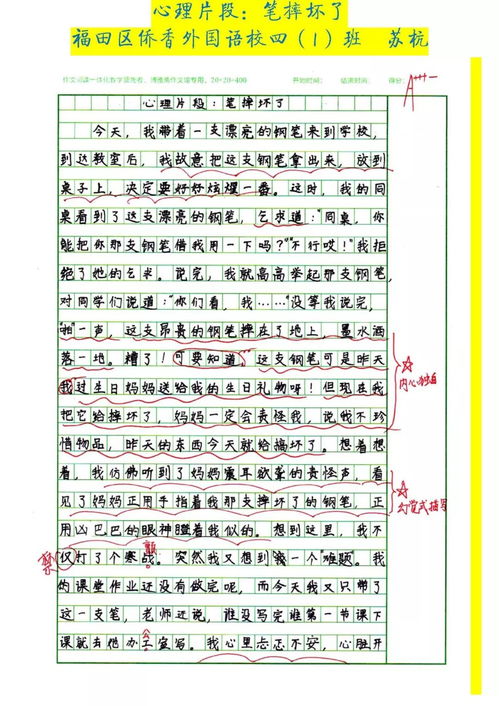 心理片段：笔摔坏了
福田区侨香外国语校四（1）班 苏杭
开始时间： 结束时间： 得分：
A+++-
心理片段：笔摔坏了
今天，我带着一支漂亮的钢笔来到学校，
到达教室后，我故意把这支钢笔拿出来，放到
桌子上，决定要好好炫耀一番。这时，我的同
桌看到了这支漂亮的钢笔，乞求道：“同桌，你
能把你那支钢笔借我用一下吗？”“不行哎！”我拒
绝了她的乞求。说完，我就高高举起那支钢笔，
对同学们说道：“你们看，我……”没等我说完，
“啪”一声，这支昂贵的钢笔摔在了地上，墨水洒
落一地，糟了！可要知道，这支钢笔可是昨天
我过生日妈妈送给我的生日礼物呀！但现在我
把它给摔坏了，妈妈一定会责怪我，说我不珍
惜物品，昨天的东西今天就给搞坏了。想着想
着，我仿佛听到了妈妈震耳欲聋的责怪声，看
见了妈妈正用手指着我那支摔坏了的钢笔，正
用凶巴巴的眼神瞪着我似的。想到这里，我不
仅打了个寒战。突然我又想到一个“难题”。我
禁
颤
的课堂作业还没有做完呢，而今天我又只带了
这一支笔，老师还说，谁没写完谁第一节课下
课就去他办工室写。我心里忐忑不安，心脏开
公
内心独白
幻觉式描写